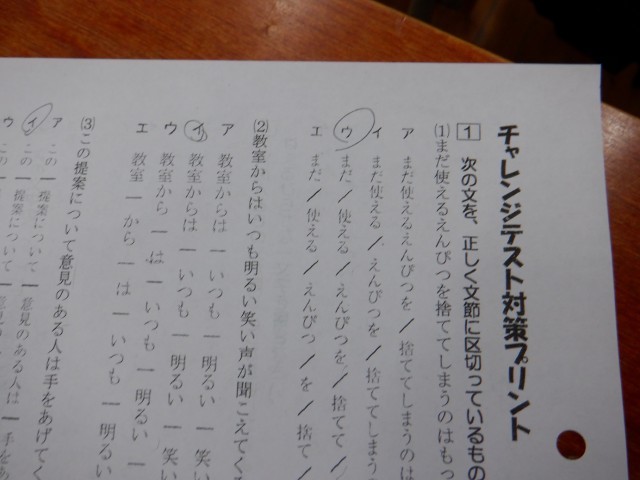 チャレンジテスト対策プリント
1 次の文を、正しく文節に区切っているもの
(1)まだ使えるえんぴつを捨ててしまうのはもっ
ア まだ使えるえんぴつを／捨ててしまうのは
イ まだ使える／えんぴつを／捨ててしまう
ウ まだ／使える／えんぴつを／捨てて／
エ まだ／使える／えんぴつ／を／捨て／
(2)教室からはいつも明るい笑い声が聞こえてく
ア 教室からは｜いつも｜明るい｜笑
イ 教室からは｜いつも｜明るい｜笑い
ウ 教室から｜は｜いつも｜明るい｜
エ 教室｜から｜は｜いつも｜明るい
(3)この提案について意見のある人は手をあげてく
ア この｜提案について｜意見のある人は｜手をあ
イ この｜提案について｜意見の
ウ